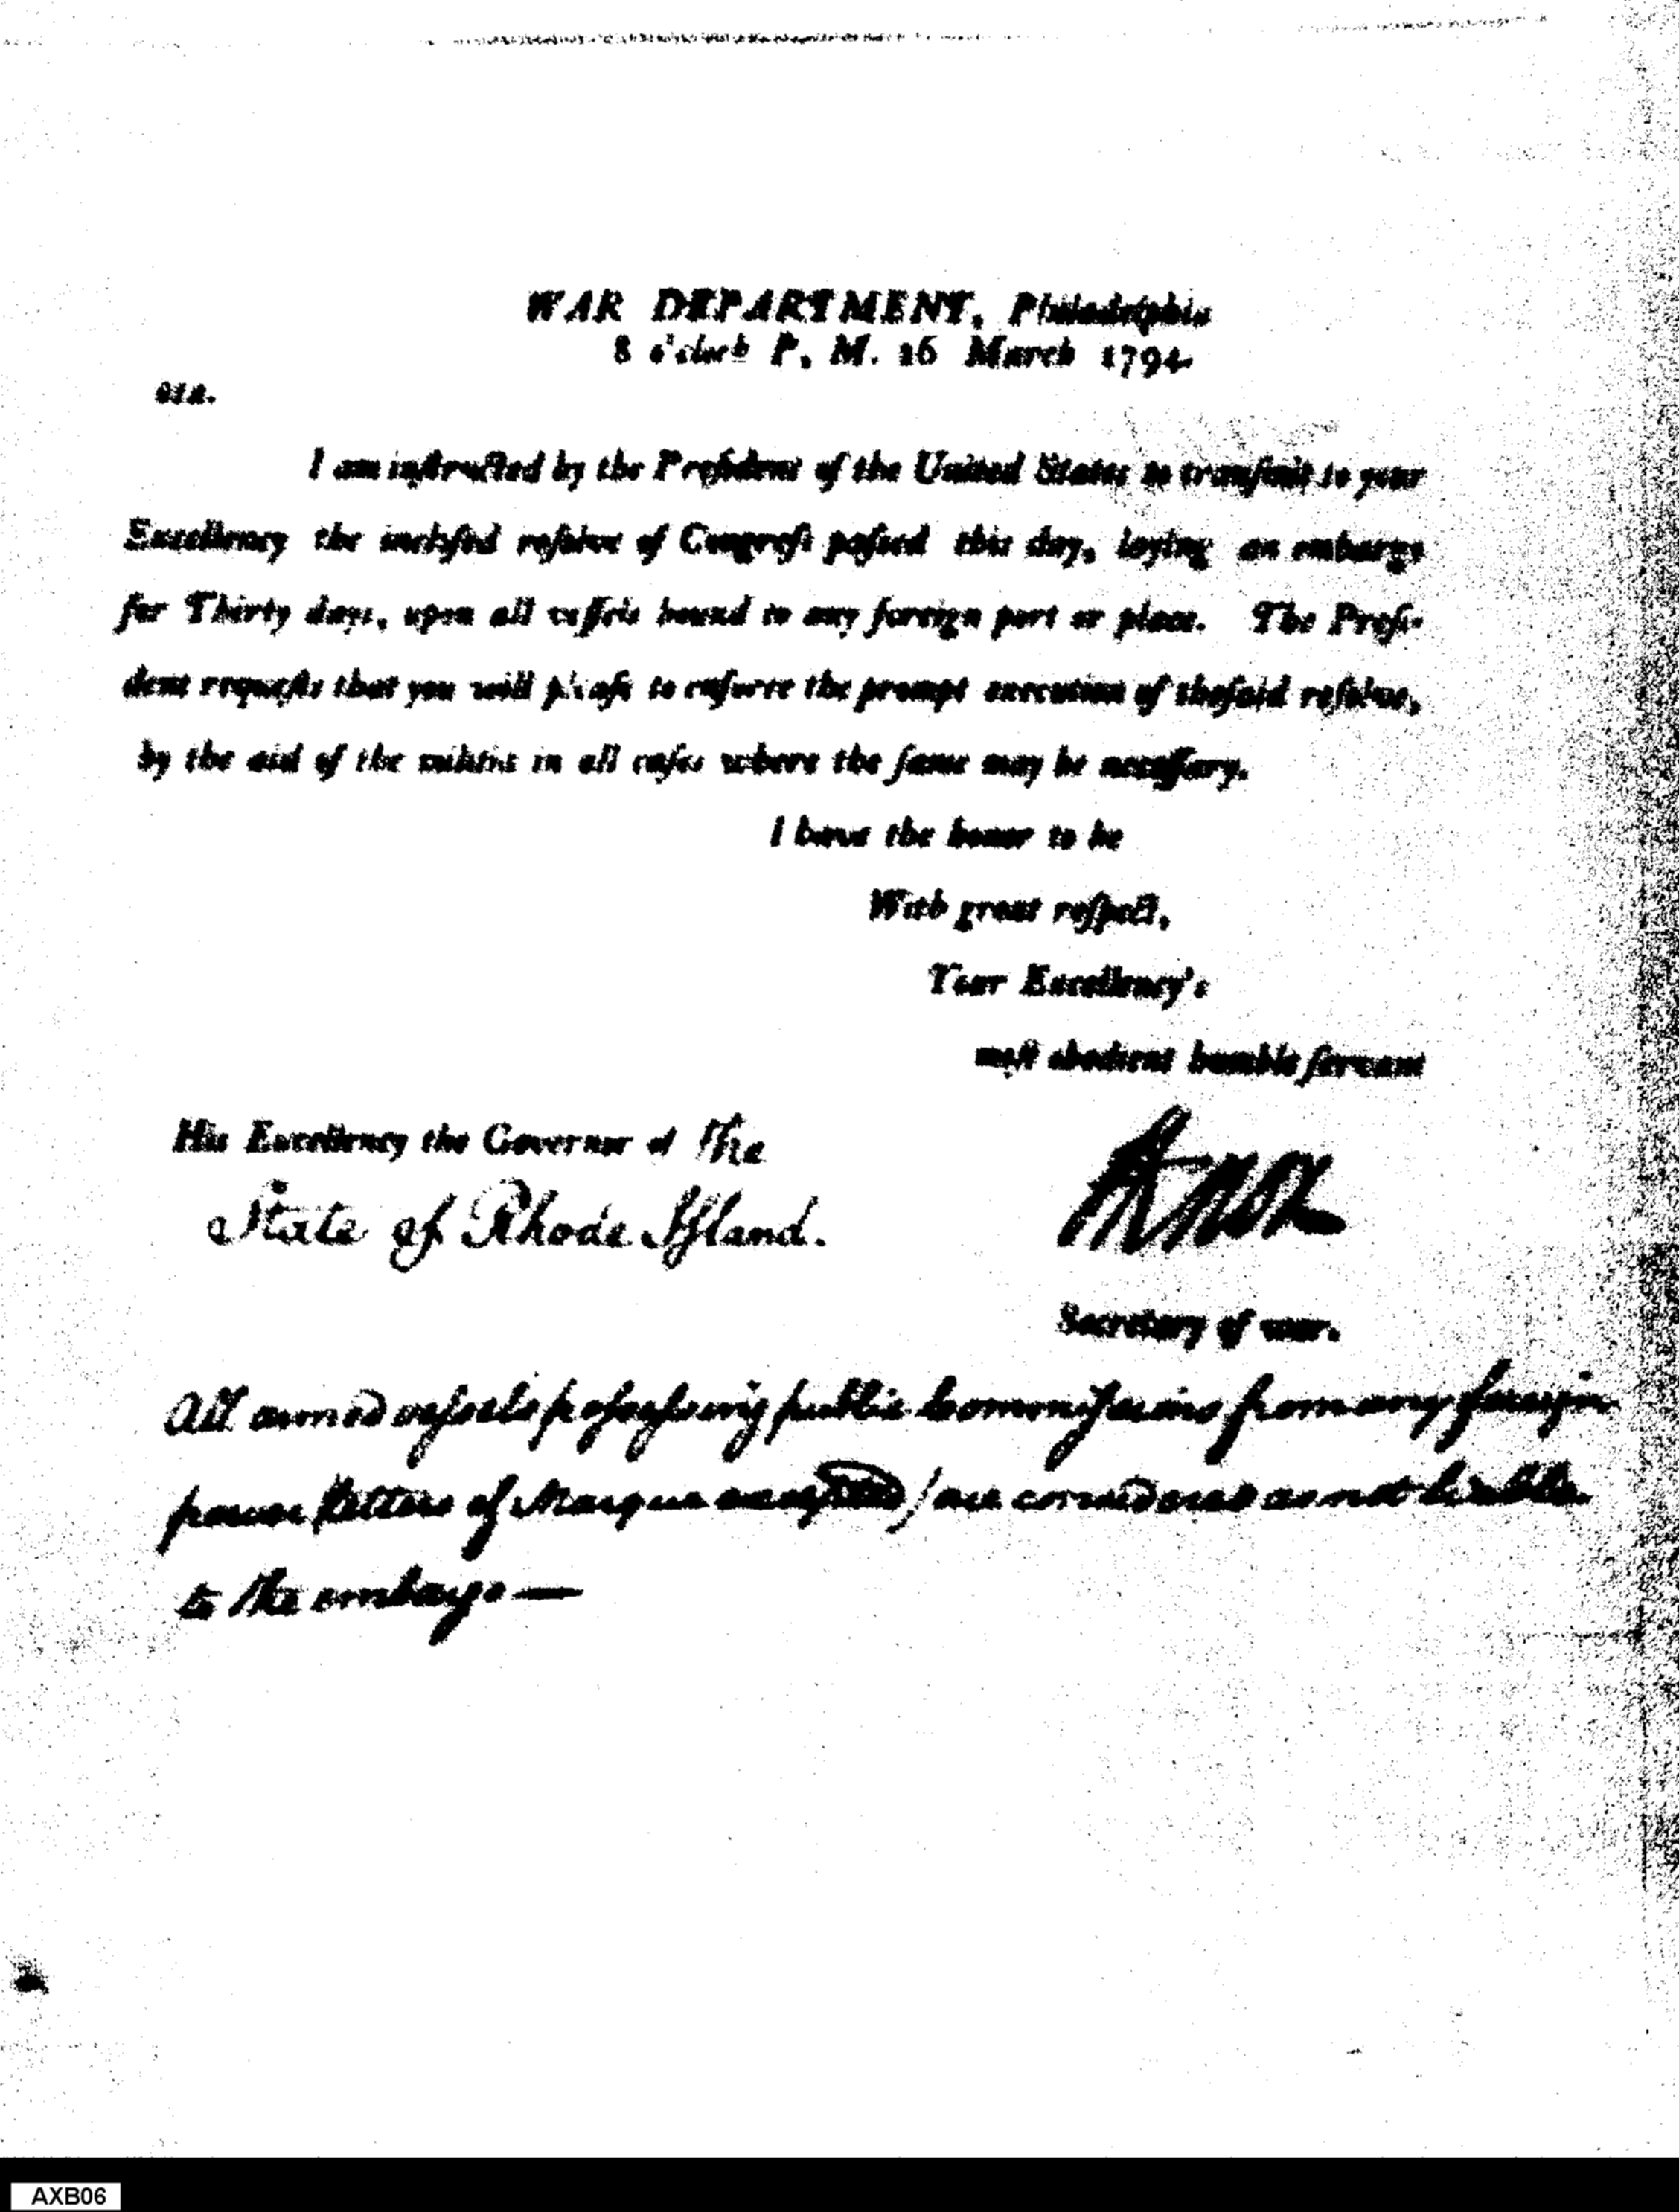 WAR DEPARTMENT, Philadelphia
8 o'clock P. M. 26 March 1794.
SIR.
I am inſtructed by the Preſident of the United States to tranſmit to your
Excellency the incloſed reſolve of Congreſs paſsed this day, laying an embargo
for Thirty days, upon all veſſels bound to any foreign port or place. The Preſi-
dent requeſts that you will pleaſe to enforce the prompt execution of the ſaid reſolve,
by the aid of the militia in all caſes where the ſame may be neceſſary.
I have the honor to be
With great reſpect,
Your Excellency's
moſt obedient humble ſervant
His Excellency the Governor of The
State of Rhode Iſland.
HKnox
Secretary of war.
All armed veſsels poſseſsing public Commiſsions from any foreign
power (letters of Marque excepted) are considered as not liable
to the embargo —
AXB06